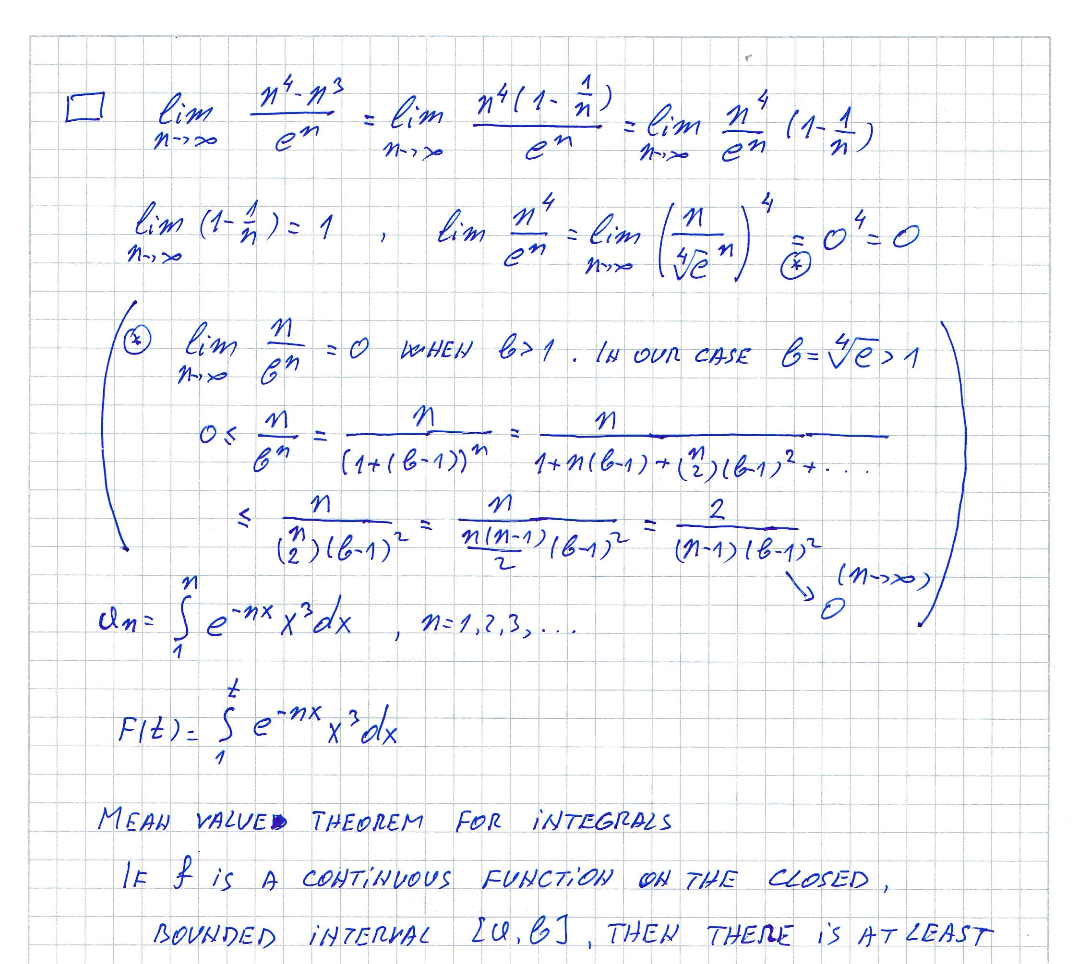 □ lim_{n→∞} (n⁴-n³)/eⁿ = lim_{n→∞} n⁴(1-1/n)/eⁿ = lim_{n→∞} n⁴/eⁿ (1-1/n)
lim_{n→∞} (1-1/n) = 1 , lim n⁴/eⁿ = lim_{n→∞} (n/∜eⁿ)⁴ =_{⊛} 0⁴ = 0
⊛ lim_{n→∞} n/bⁿ = 0 WHEN b>1. IN OUR CASE b = ∜e > 1
0 ≤ n/bⁿ = n/(1+(b-1))ⁿ = n/(1+n(b-1)+(n 2)(b-1)²+...)
≤ n/((n 2)(b-1)²) = n/((n(n-1)/2)(b-1)²) = 2/((n-1)(b-1)²) ↘ 0 (n→∞)
aₙ = ∫₁ⁿ e^{-nx} x³ dx , n=1,2,3,...
F(t) = ∫₁ᵗ e^{-nx} x³ dx
MEAN VALUE THEOREM FOR INTEGRALS
IF f IS A CONTINUOUS FUNCTION ON THE CLOSED,
BOUNDED INTERVAL [a,b], THEN THERE IS AT LEAST